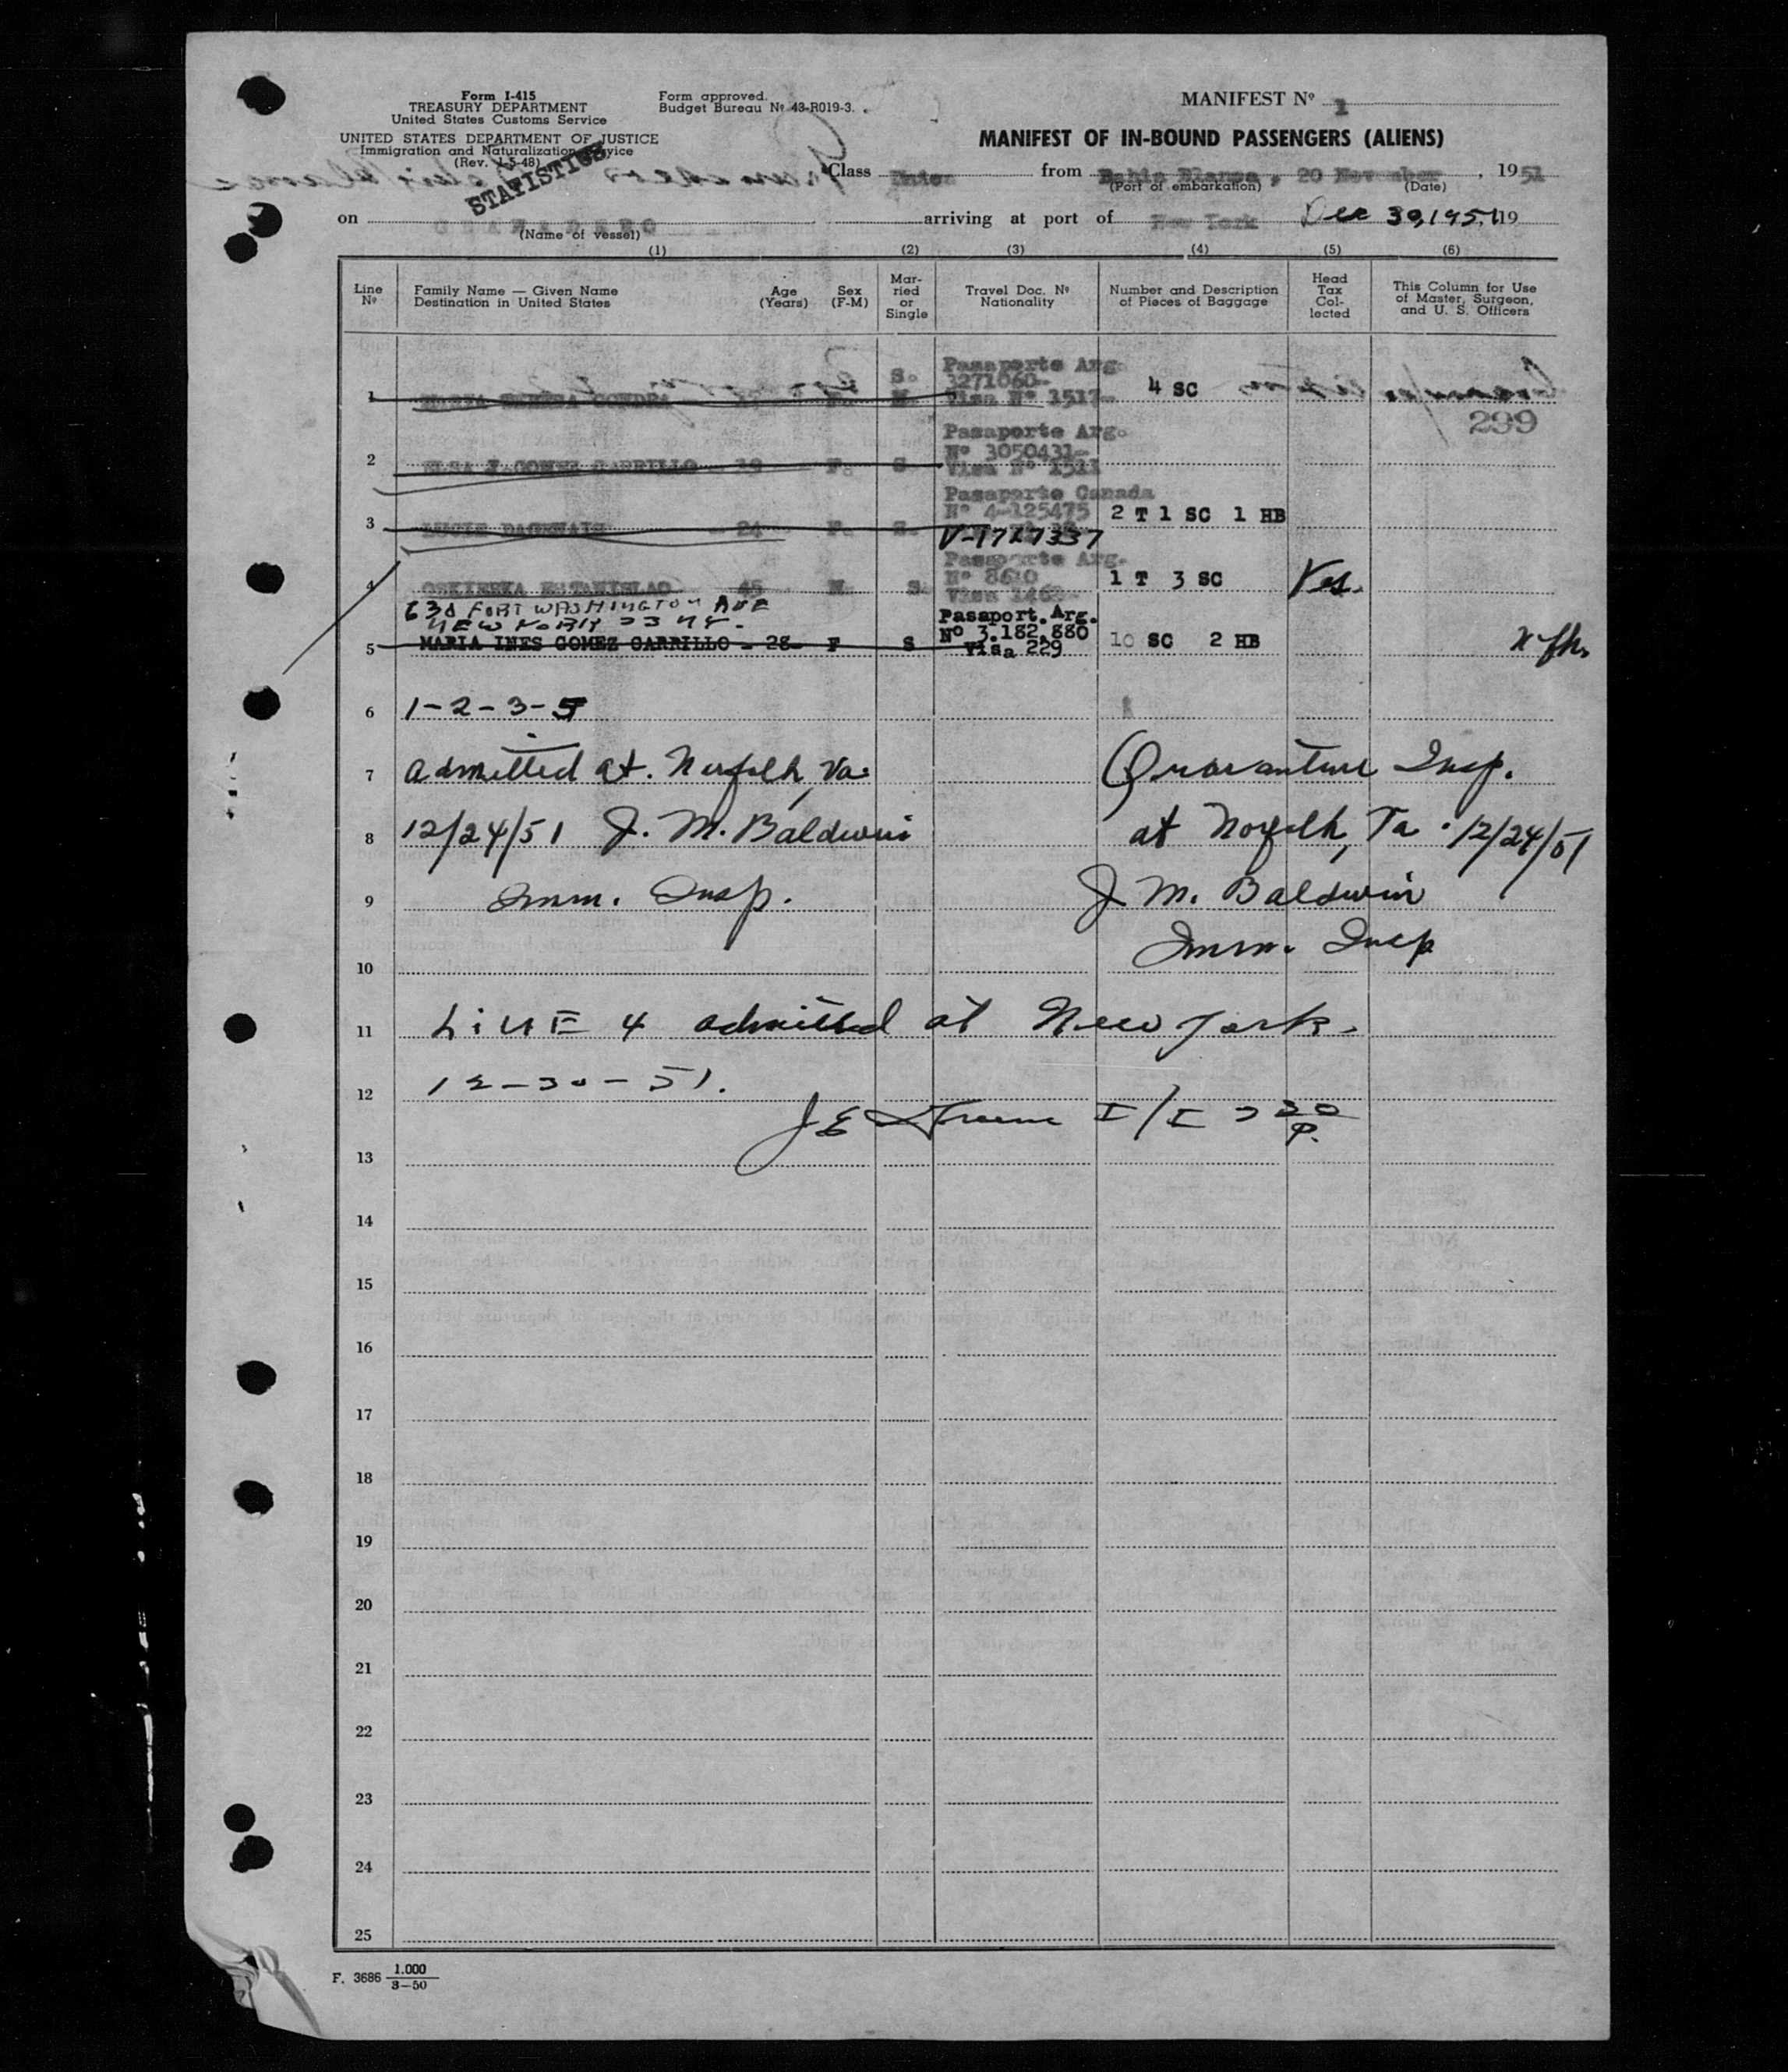 Form I-415
TREASURY DEPARTMENT
United States Customs Service
UNITED STATES DEPARTMENT OF JUSTICE
Immigration and Naturalization Service
(Rev. 1-5-48)
STATISTICS
Form approved.
Budget Bureau Nº 43-R019-3.
MANIFEST Nº 1
MANIFEST OF IN-BOUND PASSENGERS (ALIENS)
Class from Bahia Blanca, 20 November, 1951
(Port of embarkation) (Date)
on arriving at port of New York Dec 30, 1951 19
(Name of vessel)
(1) (2) (3) (4) (5) (6)
Line Nº
Family Name — Given Name
Destination in United States
Age (Years)
Sex (F-M)
Married or Single
Travel Doc. Nº
Nationality
Number and Description of Pieces of Baggage
Head Tax Collected
This Column for Use of Master, Surgeon, and U. S. Officers
1 S. Pasaporte Arg. 3271060- Visa Nº 1517- 4 SC
299
2 ELSA J GOMEZ CARRILLO 19 F. S Pasaporte Arg. Nº 3050431- Visa Nº 1511
3 24 F. S. Pasaporte Canada Nº 4-125475 V-1727337 2 T 1 SC 1 HB
4 OSKIERKA ESTANISLAO 45 M S. Pasaporte Arg. Nº 8610 Visa 1462- 1 T 3 SC Yes.
630 FORT WASHINGTON AVE
NEW YORK 33 NY.
5 MARIA INES GOMEZ CARRILLO - 28- F S Pasaport. Arg. Nº 3.182.880 Visa 229 10 SC 2 HB
6 1-2-3-5
7 Admitted at. Norfolk, Va. Quarantine Insp.
8 12/24/51 J. M. Baldwin at Norfolk, Va. 12/24/51
9 Imm. Insp. J M. Baldwin
Imm. Insp
10
11 LINE 4 admitted at New York.
12 12-30-51.
13
14
15
16
17
18
19
20
21
22
23
24
25
F. 3686 1.000
3-50